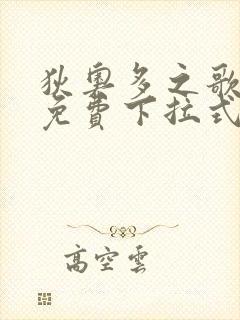 狄奧多之歌
免費下拉式
高空雲